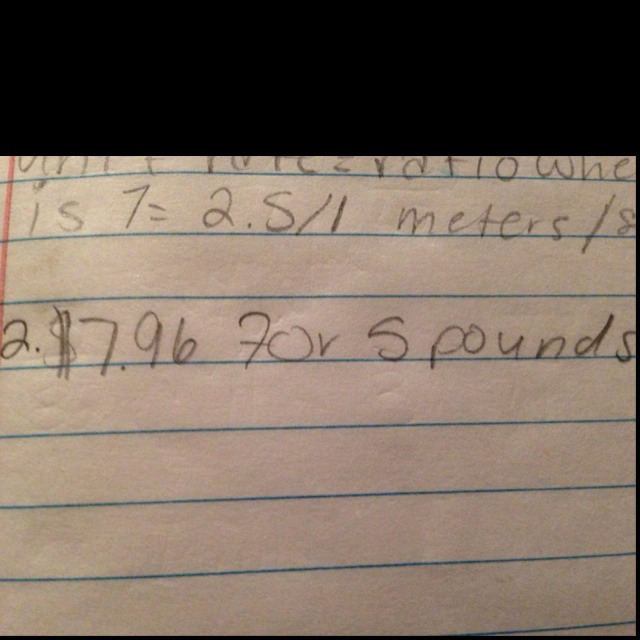 unit rate = ratio whe
is 1= 2.5/1 meters/s
2. $7.96 For 5 pounds